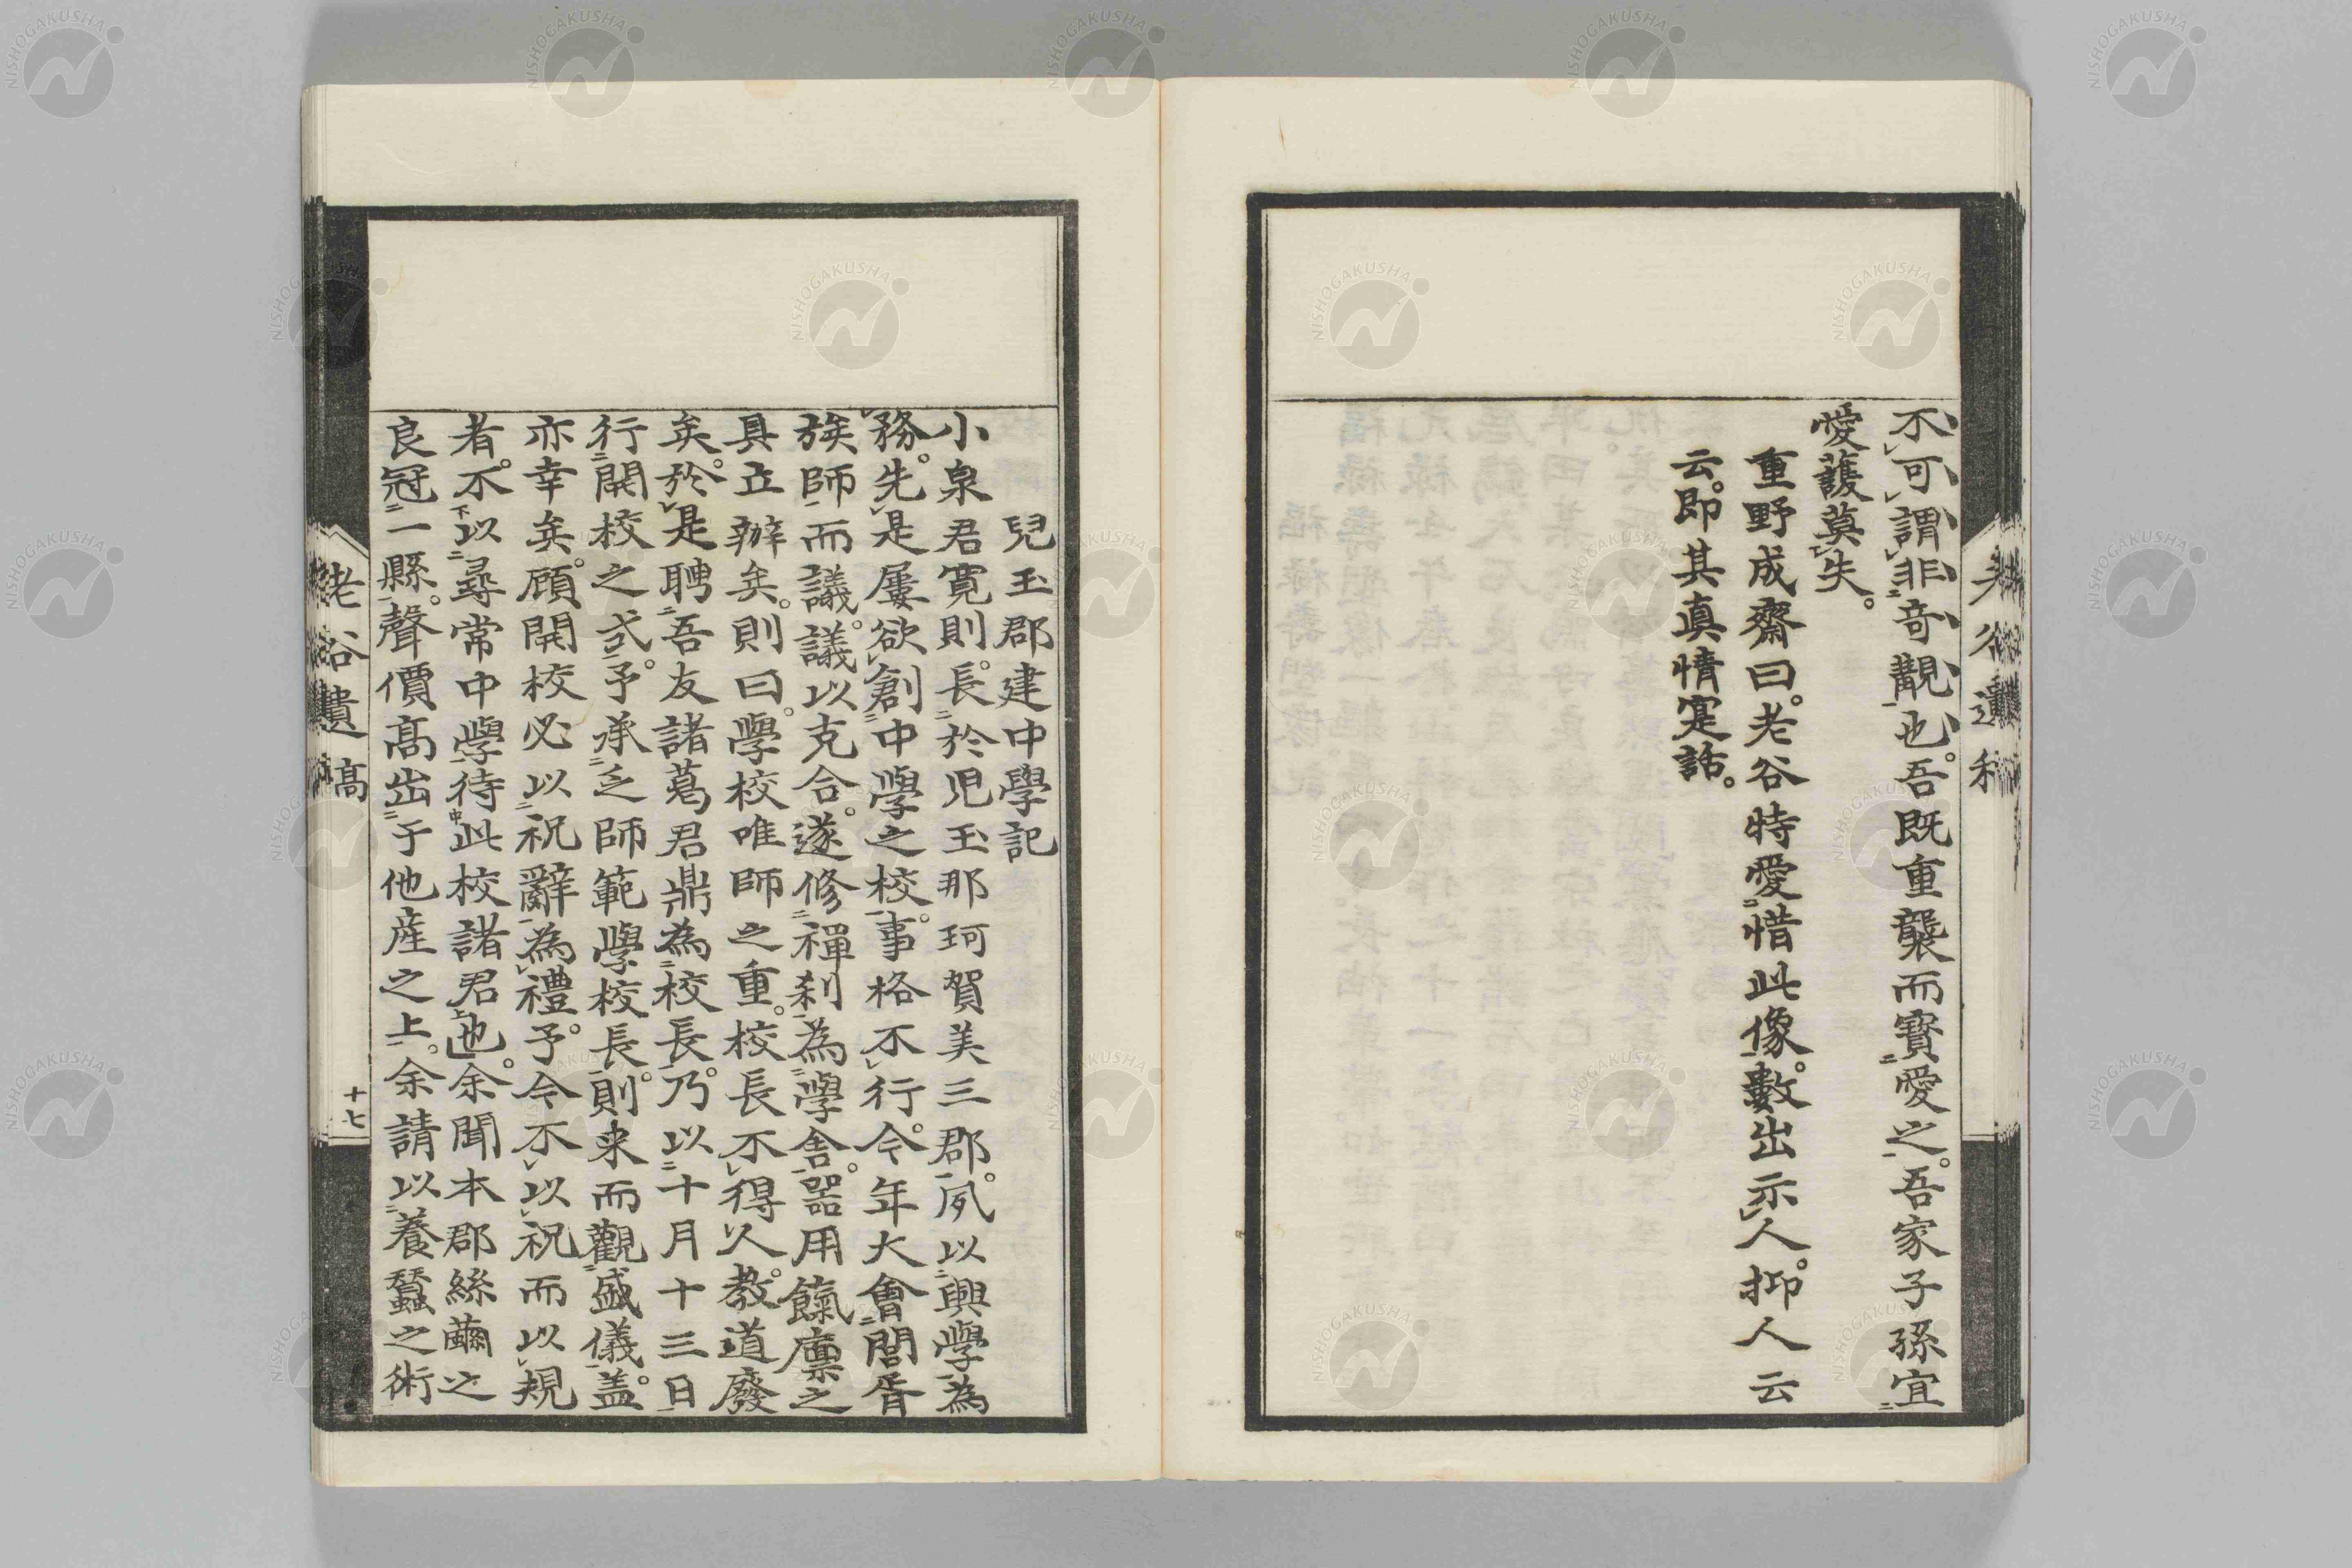 不可謂非竒觀也。吾既重襲而寳愛之。吾家子孫宜
愛護莫失。
重野成齋曰。老谷特愛惜此像。數出示人。抑人云
云。即其真情寔話。
兒玉郡建中學記
小泉君寛則。長於児玉那珂賀美三郡。夙以興學為
務。先是屢欲創中學之校。事格不行。今年大會閭胥
族師而議。議以克合。遂修禪刹為學舎。器用餼廪之
具立辦矣。則曰。學校唯師之重。校長不得人。教道廢
矣。於是聘吾友諸葛君鼎為校長。乃以十月十三日
行開校之式。予承乏師範學校長。則来而觀盛儀。盖
亦幸矣。顧開校必以祝辭為禮。予今不以祝而以規
者。不以尋常中學待此校諸君也。余聞本郡絲繭之
良冠一縣。聲價髙出于他産之上。余請以養蠶之術
老谷遺稿
十七
NISHOGAKUSHA